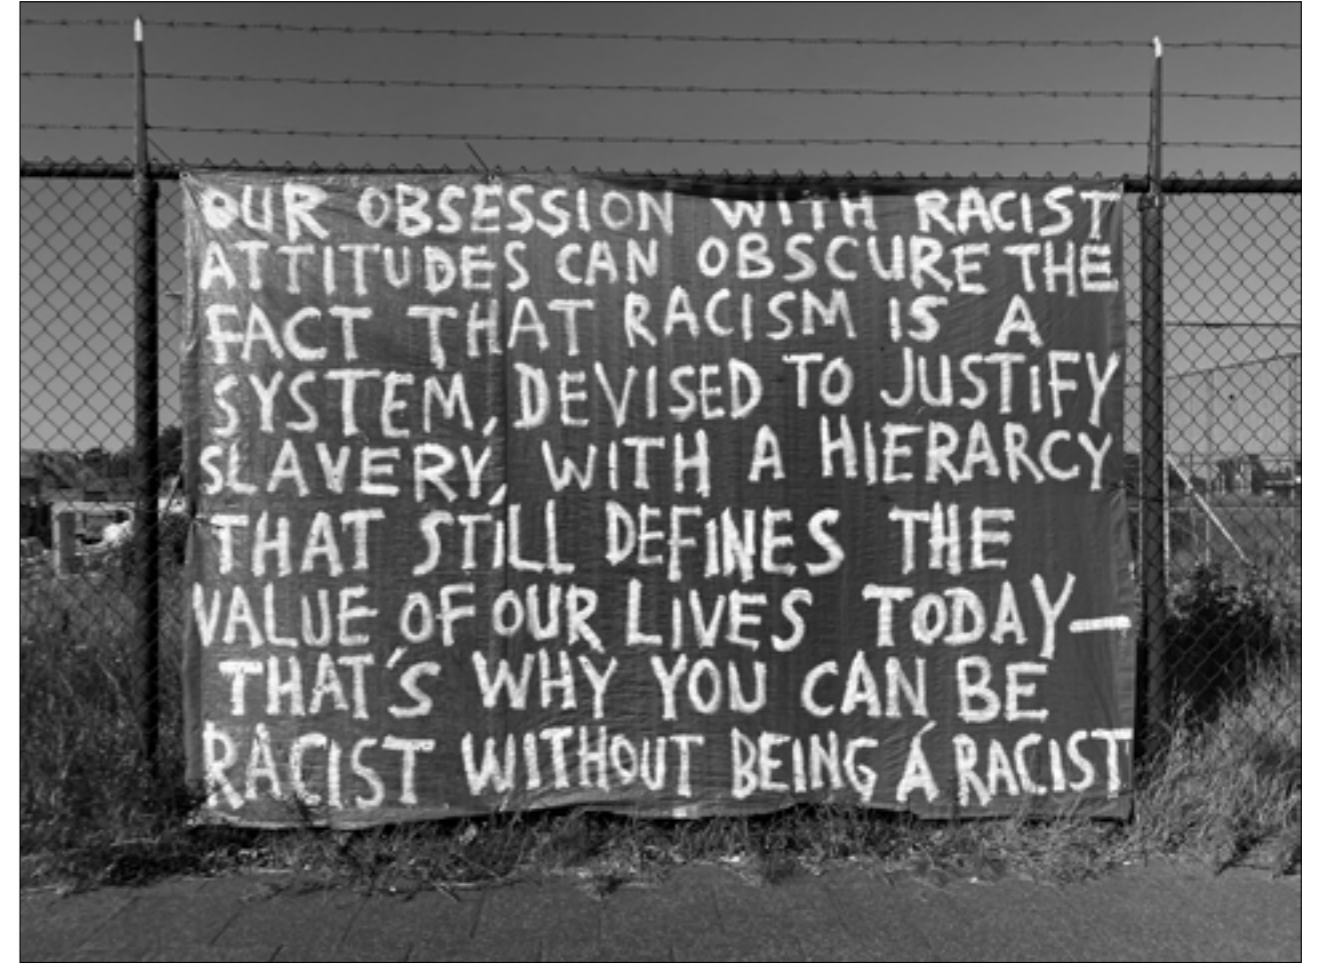 OUR OBSESSION WITH RACIST
ATTITUDES CAN OBSCURE THE
FACT THAT RACISM IS A
SYSTEM, DEVISED TO JUSTIFY
SLAVERY, WITH A HIERARCY
THAT STILL DEFINES THE
VALUE OF OUR LIVES TODAY—
THAT'S WHY YOU CAN BE
RACIST WITHOUT BEING A RACIST